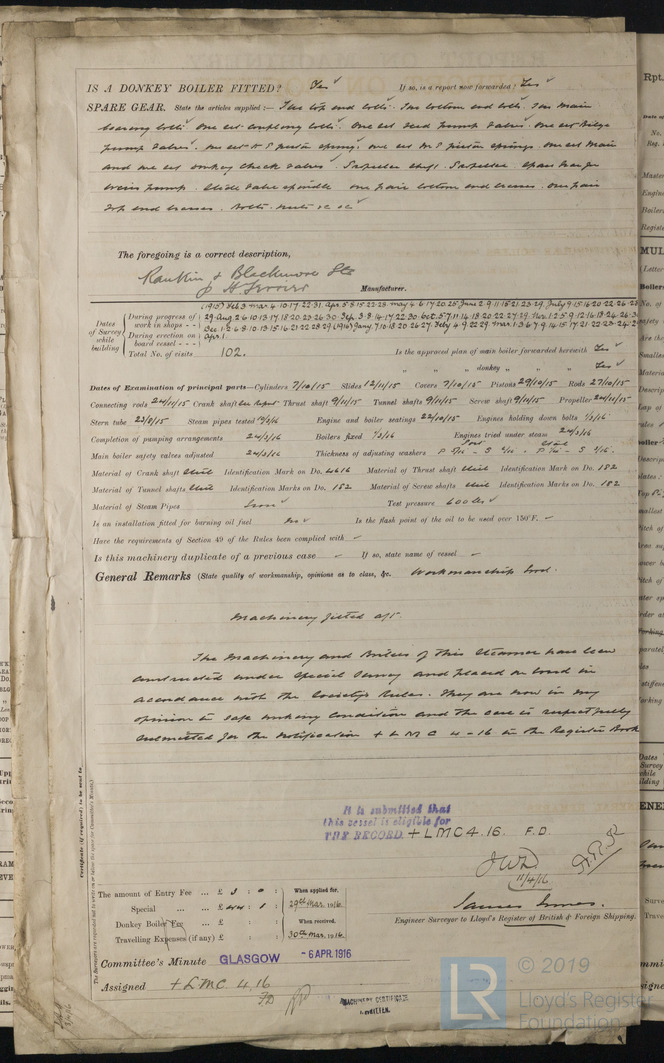 IS A DONKEY BOILER FITTED? Yes If so, is a report now forwarded? Yes
SPARE GEAR. State the articles supplied:— Two top end bolts. Two bottom end bolts. Two main
bearing bolts. One set coupling bolts. One set feed pump valves. One set Bilge
pump valves. One set H P piston springs. One set M P piston springs. One set main
and one set donkey check valves. Propeller shaft. Propeller. Spare
pump. Slide valve spindle one pair bottom end brasses. One pair
top end brasses. Bolts. nuts &c &c
The foregoing is a correct description,
Rankin & Blackmore Ltd
Manufacturer.
Dates of Survey while building
During progress of work in shops -- (1915) Feb 3 Mar 4 10 17 22 31 Apr 5 8 15 22 28 May 4 6 17 20 25 June 2 9 11 15 21 23 29 July 9 15 14 20 22 26 28
29 Aug 2 6 10 13 17 18 20 23 26 30 Sep 3 8 14 17 22 30 Oct 5 7 11 14 18 20 22 27 29 Nov 1 2 5 9 12 16 18 24 26 30
During erection on board vessel --- Dec 1 2 6 8 10 13 15 16 21 22 28 29 (1916) Jany 7 10 18 20 26 27 Feby 4 9 22 29 Mar 1 3 6 7 9 14 15 17 21 22 23 24 28
Apr 1
Total No. of visits 102.
Is the approved plan of main boiler forwarded herewith Yes
" " " donkey " " " Yes
Dates of Examination of principal parts—Cylinders 7/10/15 Slides 12/11/15 Covers 7/10/15 Pistons 29/10/15 Rods 27/10/15
Connecting rods 24/11/15 Crank shaft See Report Thrust shaft 9/11/15 Tunnel shafts 9/11/15 Screw shaft 9/11/15 Propeller 24/11/15
Stern tube 23/8/15 Steam pipes tested Engine and boiler seatings 22/10/15 Engines holding down bolts 1/3/16
Completion of pumping arrangements 24/3/16 Boilers fixed 1/3/16 Engines tried under steam 24/3/16
Main boiler safety valves adjusted 24/3/16 Thickness of adjusting washers Port
Material of Crank shaft Steel Identification Mark on Do. 4616 Material of Thrust shaft Steel Identification Mark on Do. 182
Material of Tunnel shafts Steel Identification Marks on Do. 182 Material of Screw shafts Steel Identification Marks on Do. 182
Material of Steam Pipes Iron Test pressure 600 lbs
Is an installation fitted for burning oil fuel no Is the flash point of the oil to be used over 150°F. –
Have the requirements of Section 49 of the Rules been complied with –
Is this machinery duplicate of a previous case – If so, state name of vessel –
General Remarks (State quality of workmanship, opinions as to class, &c. Workmanship good.
Machinery fitted aft.
The Machinery and Boilers of this Steamer have been
constructed under Special Survey and placed on board in
accordance with the Society's Rules. They are now in my
opinion in safe working condition and the case is respectfully
submitted for the notification + L M C 4-16 in the Register Book
Certificate (if required) to be sent to
(The Surveyors are requested not to write on or below the space for Committee's Minute.)
It is submitted that
this vessel is eligible for
THE RECORD. + LMC 4.16. F.D.
JWD
11/4/16
The amount of Entry Fee ... £ 3 : 0 : When applied for.
Special ... ... £ 44 : 1 : 29th Mar. 1916
Donkey Boiler Fee ... £ : : When received.
Travelling Expenses (if any) £ : : 30th Mar. 1916
James Innes.
Engineer Surveyor to Lloyd's Register of British & Foreign Shipping.
Committee's Minute GLASGOW - 6 APR. 1916
Assigned + LMC 4.16
FD
MACHINERY CERTIFICATE
WRITTEN.
LR © 2019
Lloyd's Register
Foundation